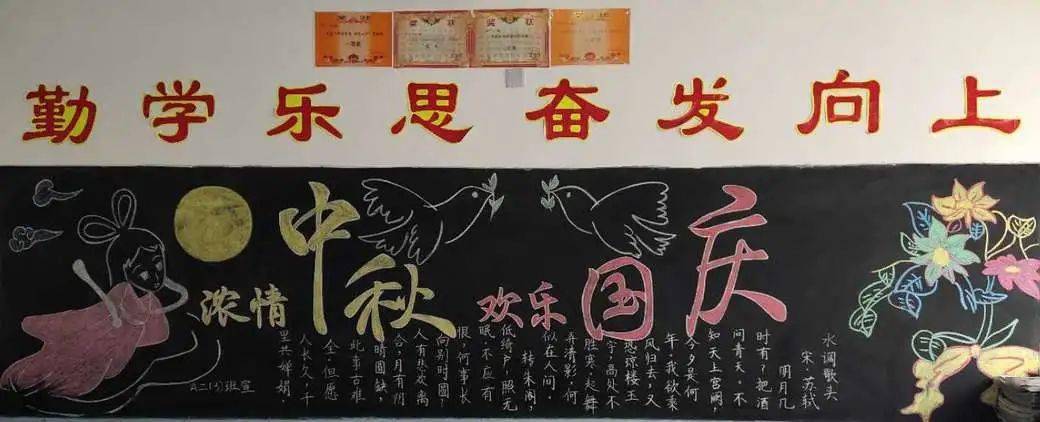 奖状
奖状
勤学乐思奋发向上
浓情中秋
欢乐国庆
水调歌头
宋·苏轼
明月几
时有?把酒
问青天。不
知天上宫阙,
今夕是何
年。我欲乘
风归去,又
恐琼楼玉
宇,高处不
胜寒。起舞
弄清影,何
似在人间。
转朱阁,
低绮户,照无
眠。不应有
恨,何事长
向别时圆?
人有悲欢离
合,月有阴
晴圆缺,
此事古难
全。但愿
人长久,千
里共婵娟。